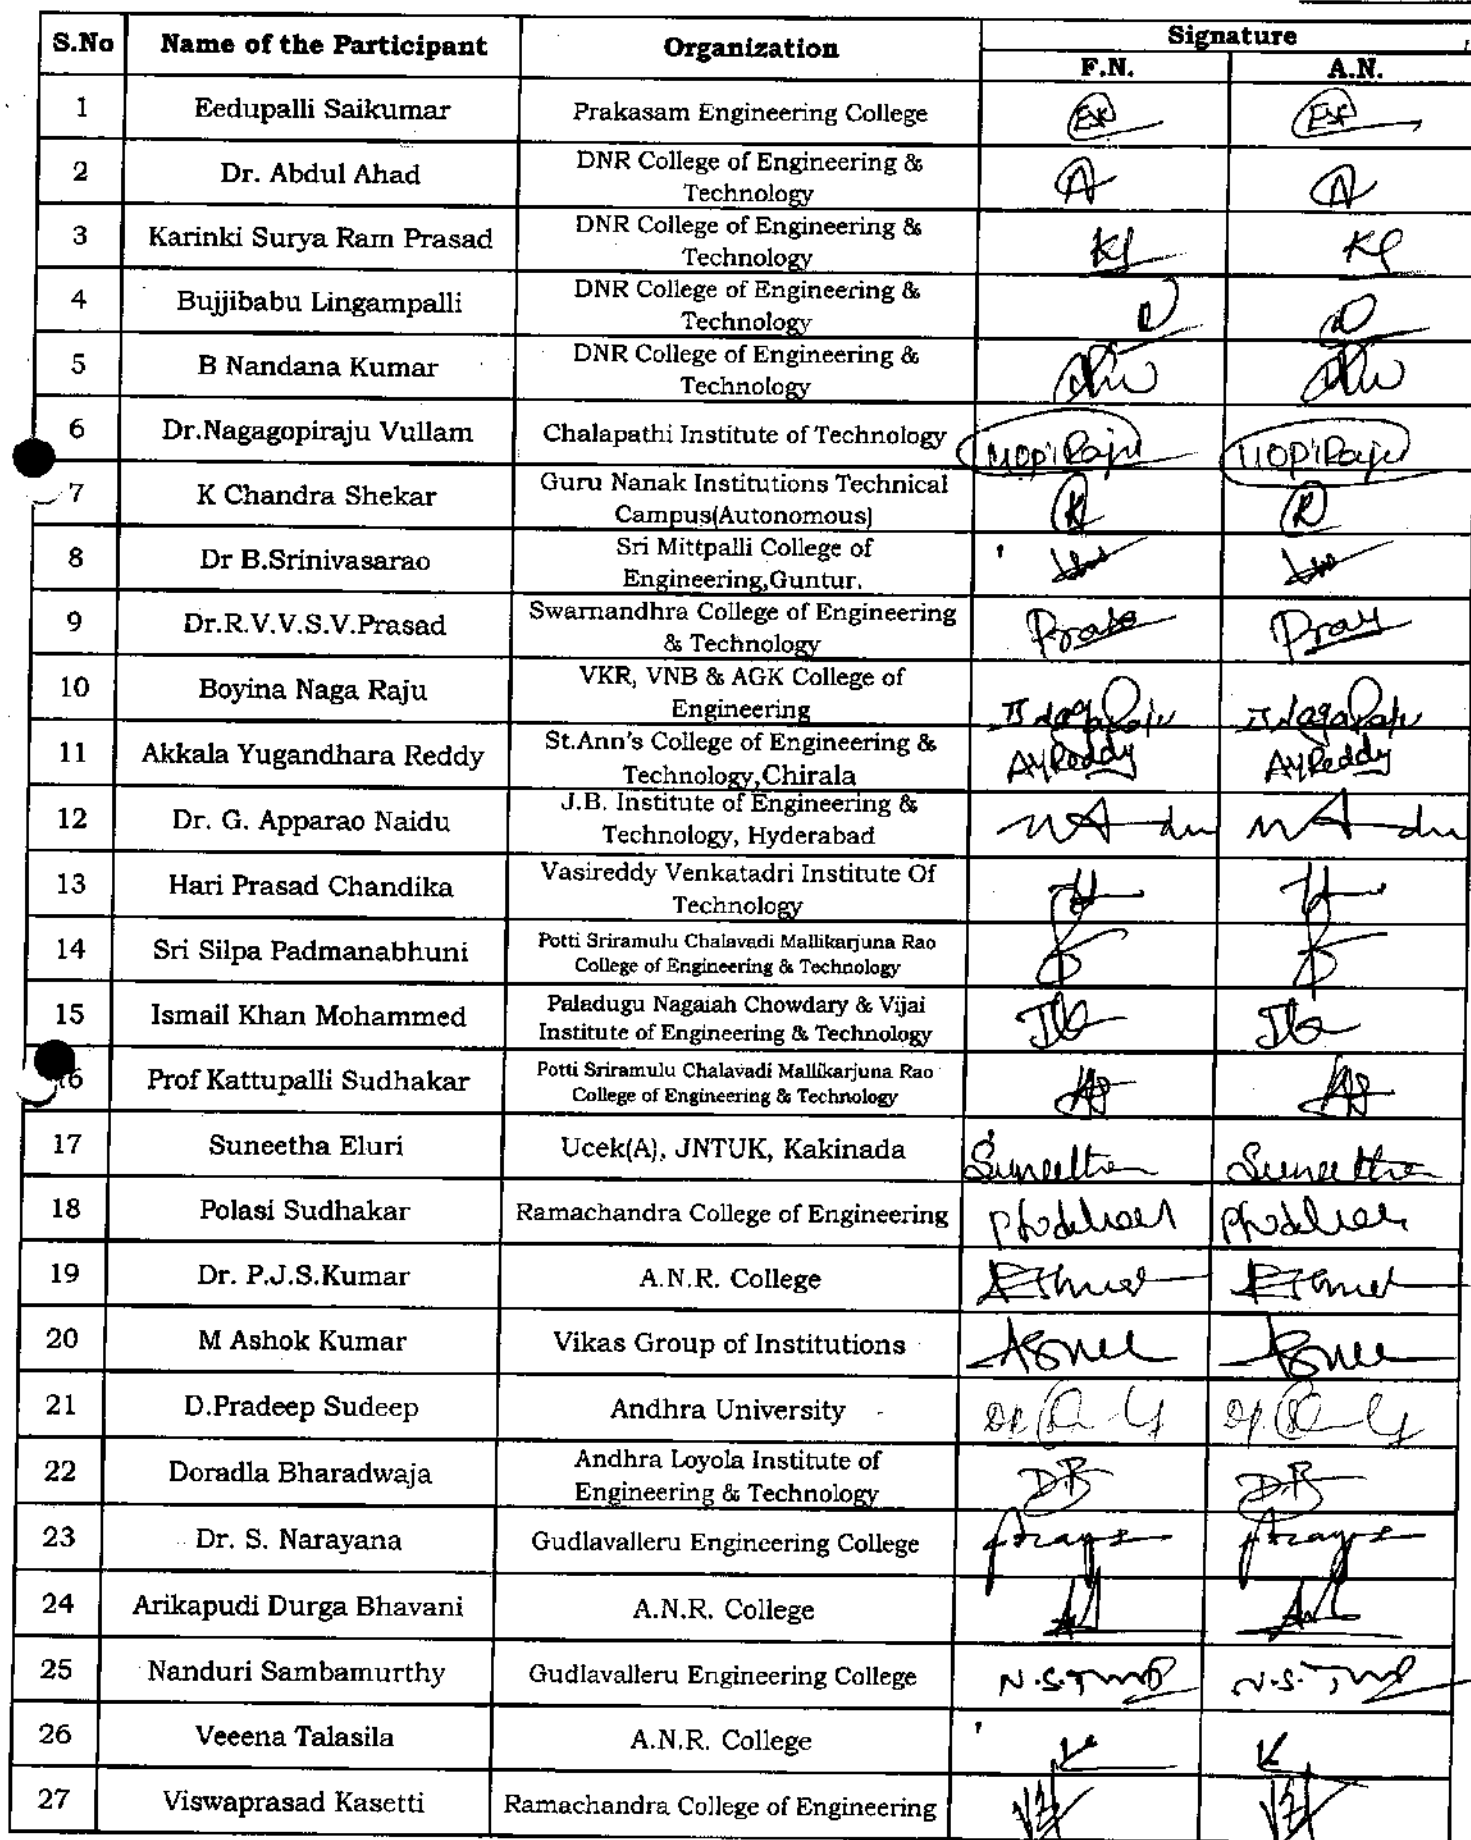 S.No Name of the Participant Organization Signature
F.N. A.N.
1 Eedupalli Saikumar Prakasam Engineering College
2 Dr. Abdul Ahad DNR College of Engineering &
Technology
3 Karinki Surya Ram Prasad DNR College of Engineering &
Technology
4 Bujjibabu Lingampalli DNR College of Engineering &
Technology
5 B Nandana Kumar DNR College of Engineering &
Technology
6 Dr.Nagagopiraju Vullam Chalapathi Institute of Technology
7 K Chandra Shekar Guru Nanak Institutions Technical
Campus(Autonomous)
8 Dr B.Srinivasarao Sri Mittpalli College of
Engineering,Guntur.
9 Dr.R.V.V.S.V.Prasad Swarnandhra College of Engineering
& Technology
10 Boyina Naga Raju VKR, VNB & AGK College of
Engineering
11 Akkala Yugandhara Reddy St.Ann's College of Engineering &
Technology,Chirala AYReddy AYReddy
12 Dr. G. Apparao Naidu J.B. Institute of Engineering &
Technology, Hyderabad
13 Hari Prasad Chandika Vasireddy Venkatadri Institute Of
Technology
14 Sri Silpa Padmanabhuni Potti Sriramulu Chalavadi Mallikarjuna Rao
College of Engineering & Technology
15 Ismail Khan Mohammed Paladugu Nagaiah Chowdary & Vijai
Institute of Engineering & Technology
16 Prof Kattupalli Sudhakar Potti Sriramulu Chalavadi Mallikarjuna Rao
College of Engineering & Technology
17 Suneetha Eluri Ucek(A), JNTUK, Kakinada Suneetha Suneetha
18 Polasi Sudhakar Ramachandra College of Engineering
19 Dr. P.J.S.Kumar A.N.R. College
20 M Ashok Kumar Vikas Group of Institutions
21 D.Pradeep Sudeep Andhra University
22 Doradla Bharadwaja Andhra Loyola Institute of
Engineering & Technology
23 Dr. S. Narayana Gudlavalleru Engineering College
24 Arikapudi Durga Bhavani A.N.R. College
25 Nanduri Sambamurthy Gudlavalleru Engineering College
26 Veeena Talasila A.N.R. College
27 Viswaprasad Kasetti Ramachandra College of Engineering